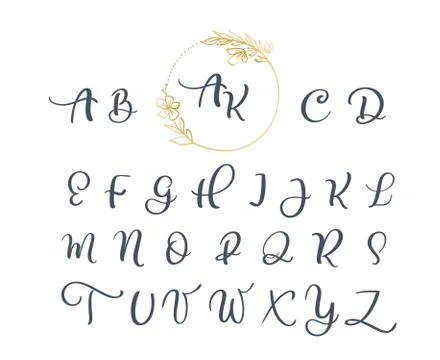 A B AK C D
E F G H I J K L
M N O P Q R S
T U V W X Y Z